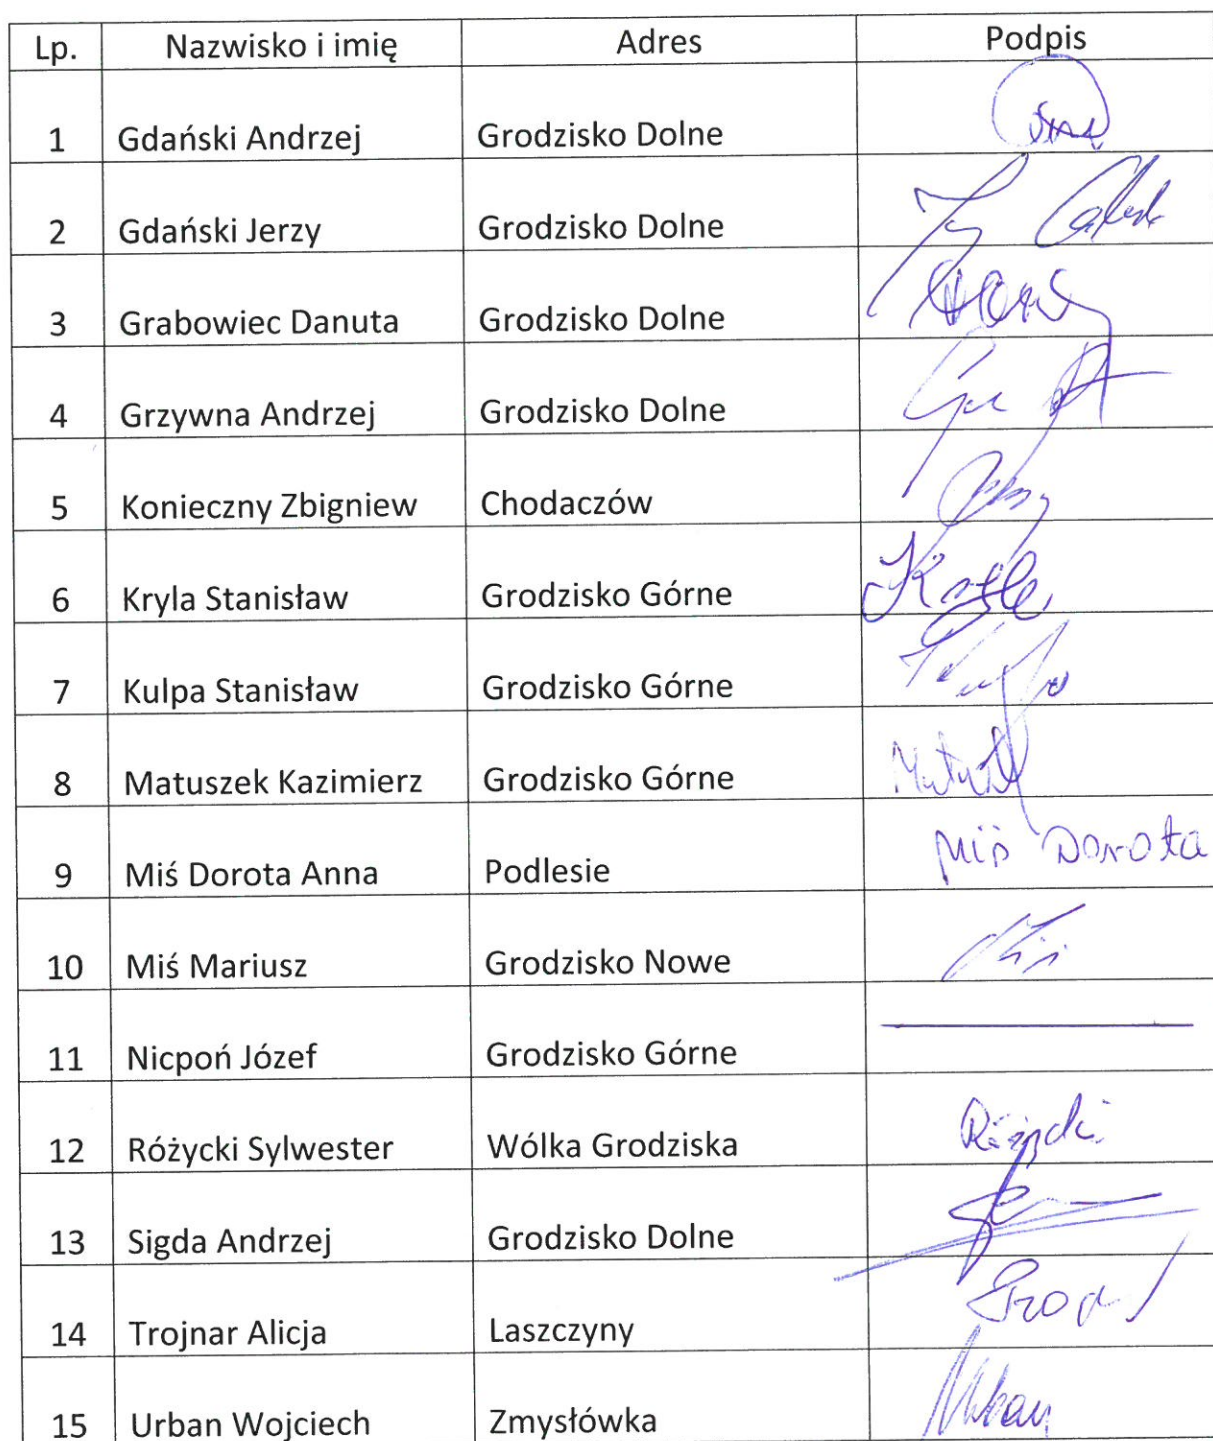 Lp. Nazwisko i imię Adres Podpis
1 Gdański Andrzej Grodzisko Dolne
2 Gdański Jerzy Grodzisko Dolne
3 Grabowiec Danuta Grodzisko Dolne
4 Grzywna Andrzej Grodzisko Dolne
5 Konieczny Zbigniew Chodaczów
6 Kryla Stanisław Grodzisko Górne
7 Kulpa Stanisław Grodzisko Górne
8 Matuszek Kazimierz Grodzisko Górne
9 Miś Dorota Anna Podlesie Miś Dorota
10 Miś Mariusz Grodzisko Nowe Miś
11 Nicpoń Józef Grodzisko Górne
12 Różycki Sylwester Wólka Grodziska
13 Sigda Andrzej Grodzisko Dolne
14 Trojnar Alicja Laszczyny
15 Urban Wojciech Zmysłówka Urban